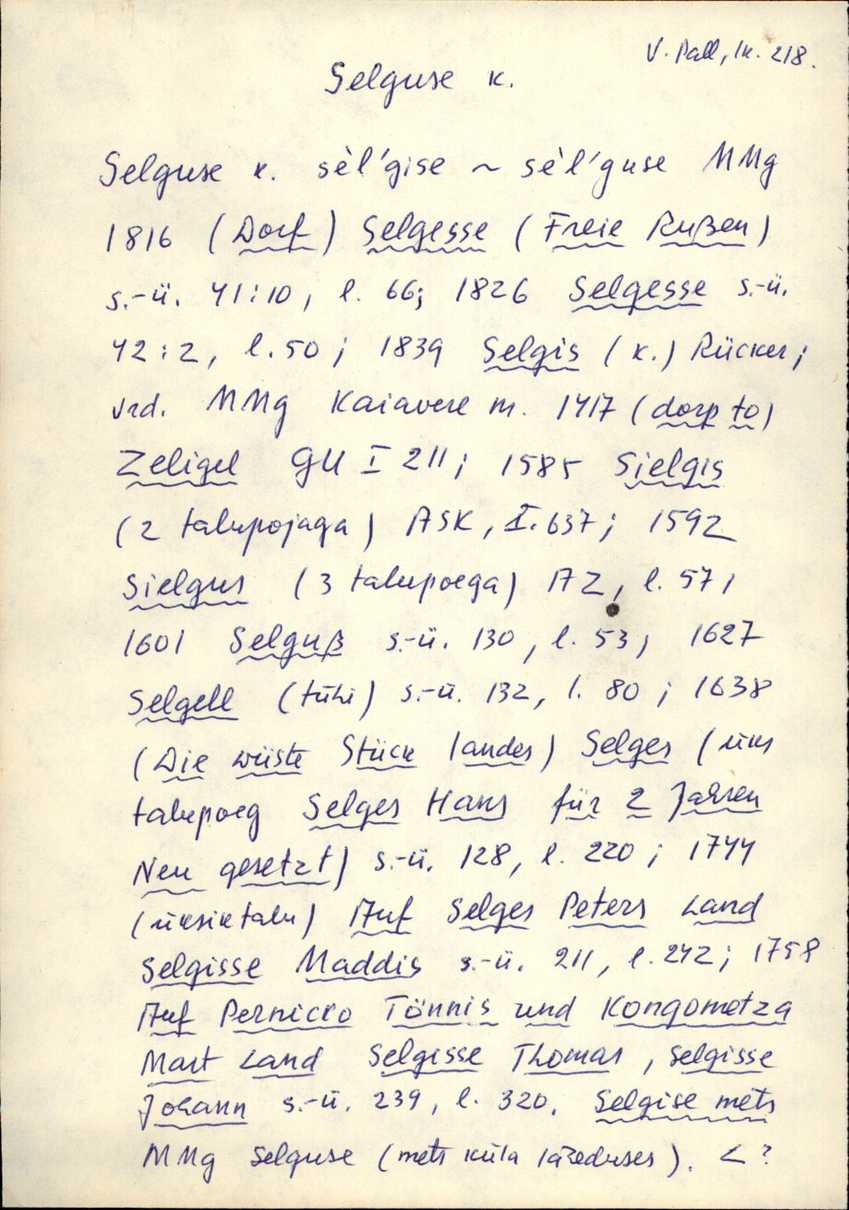 V. Pall, lk. 218.
Selguse k.
Selguse k. sèl'gise ~ sè'l'guse MMg
1816 (Dorf) Selgesse (Freie Rußen)
s.-ü. 41:10, l. 66; 1826 Selgesse s.-ü.
42:2, l. 50; 1839 Selgis (k.) Rücker;
vrd. MMg Kaiavere m. 1417 (dorp to)
Zeligel GU I 211; 1585 Sielgis
(2 talupojaga) ASK, I. 637; 1592
Sielgus (3 talupoega) AZ, l. 57;
1601 Selguß s.-ü. 130, l. 53; 1627
Selgell (tühi) s.-ü. 132, l. 80; 1638
(Die wüste Stück landes) Selges (üks
talupoeg Selges Hans für 2 Jahren
Neu gesetzt) s.-ü. 128, l. 220; 1744
(üksiktalu) Auf Selges Peters Land
Selgisse Maddis s.-ü. 211, l. 242; 1758
Auf Pernicko Tönnis und Kongometza
Mart Land Selgisse Thomas, Selgisse
Johann s.-ü. 239, l. 320. Selgise mets
MMg Selguse (mets küla läheduses). < ?